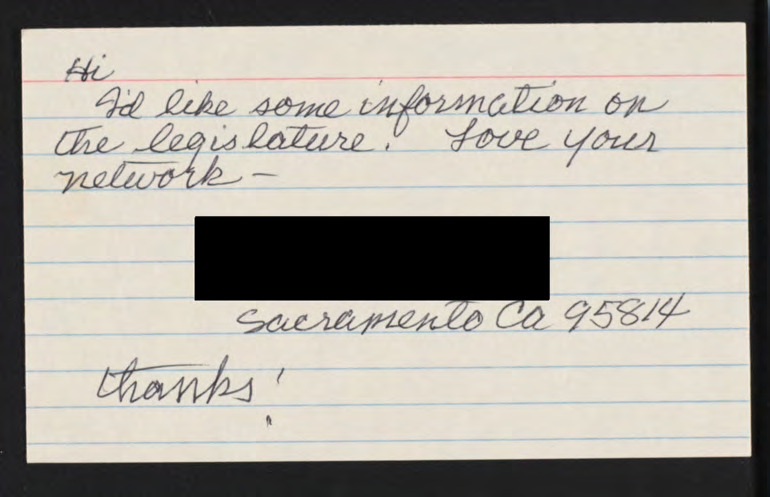 Hi
I'd like some information on
the legislature. Love your
network -
Sacramento Ca 95814
thanks!